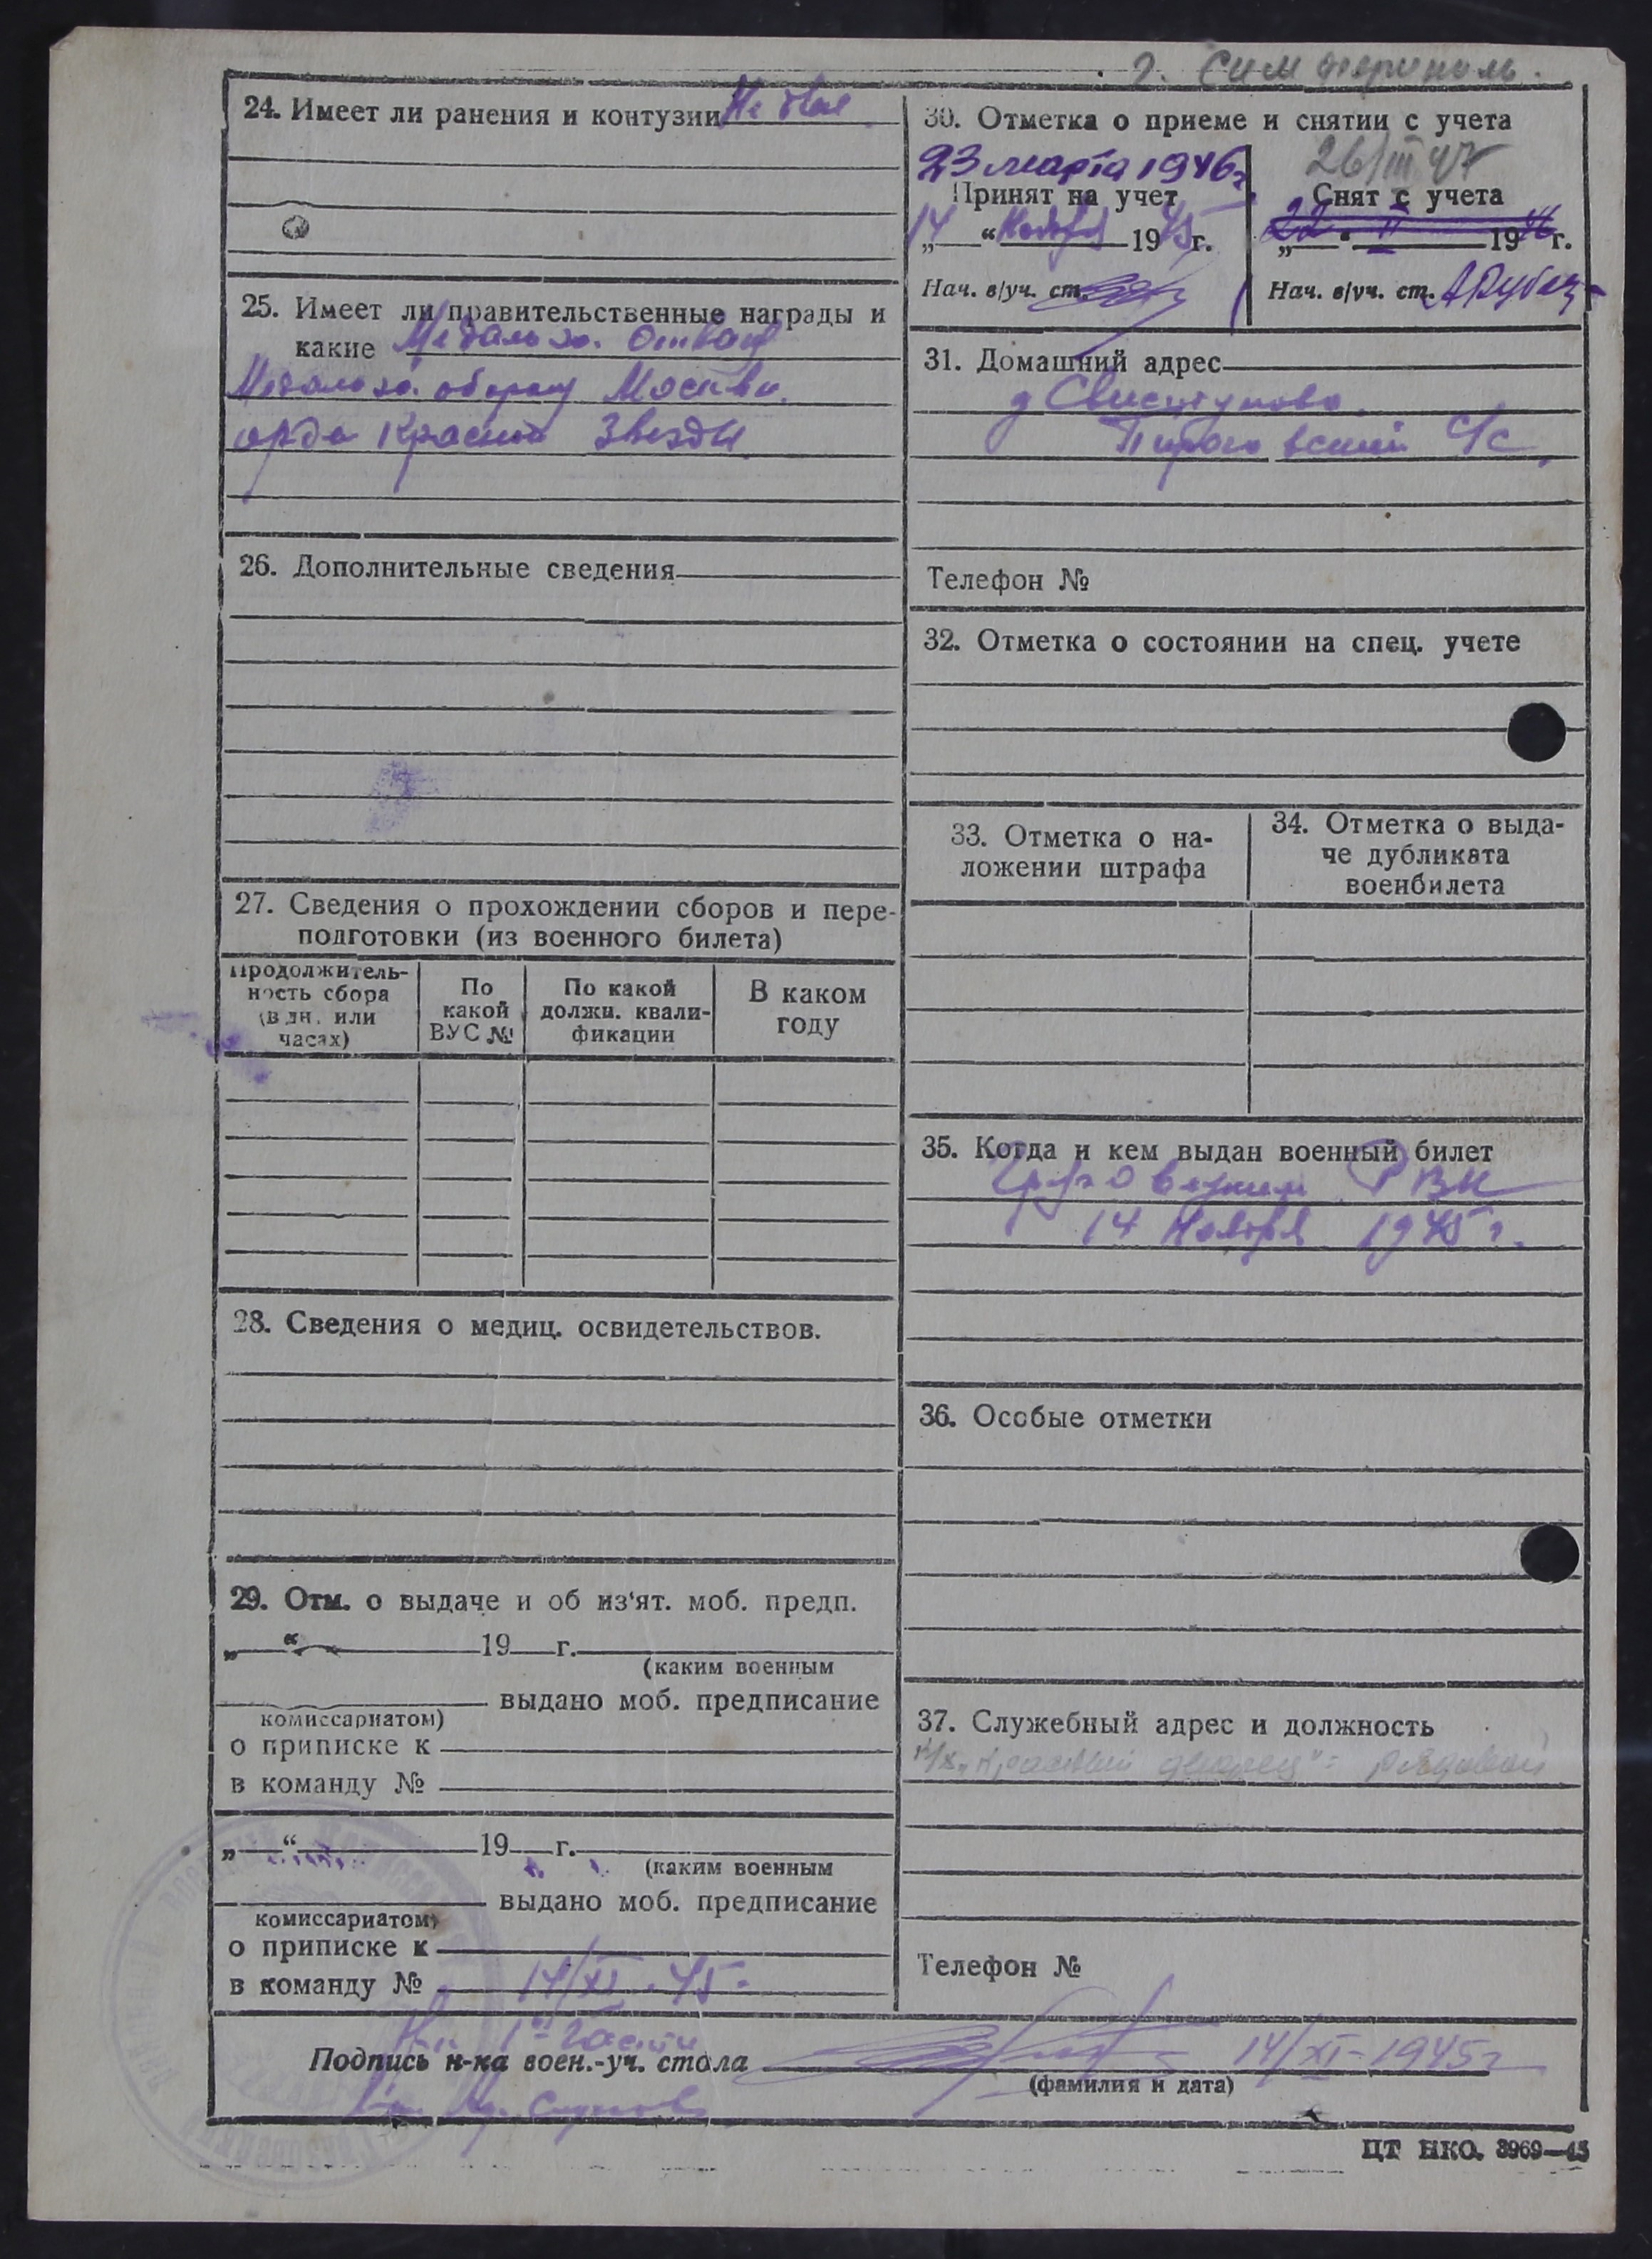 г. Симферополь.
24. Имеет ли ранения и контузии Не был
25. Имеет ли правительственные награды и
какие Медаль за. отвагу
Медаль за. оборону Москвы.
орден Красной Звезды
26. Дополнительные сведения
27. Сведения о прохождении сборов и пере-
подготовки (из военного билета)
Продолжитель-
ность сбора
(в дн. или
часах)
По
какой
ВУС №
По какой
должн. квали-
фикации
В каком
году
28. Сведения о медиц. освидетельствов.
29. Отм. о выдаче и об из'ят. моб. предп.
„ “ 19 г.
(каким военным
выдано моб. предписание
комиссариатом)
о приписке к
в команду №
„ “ 19 г.
(каким военным
выдано моб. предписание
комиссариатом)
о приписке к
в команду № 14/XI.45г
30. Отметка о приеме и снятии с учета
23 марта 1946г.
Принят на учет
„14“ Ноября 1945г.
Нач. в/уч. ст.
26/III 47
Снят с учета
„22“ II 1946г.
Нач. в/уч. ст.
31. Домашний адрес
д Свистуново
Пироговский С/С
Телефон №
32. Отметка о состоянии на спец. учете
33. Отметка о на-
ложении штрафа
34. Отметка о выда-
че дубликата
военбилета
35. Когда и кем выдан военный билет
РВК
14 Ноября 1945г.
36. Особые отметки
37. Служебный адрес и должность
рядовой
Телефон №
1й части
Подпись н-ка воен.-уч. стола 14/XI-1945г
(фамилия и дата)
ЦТ НКО. 3969—45